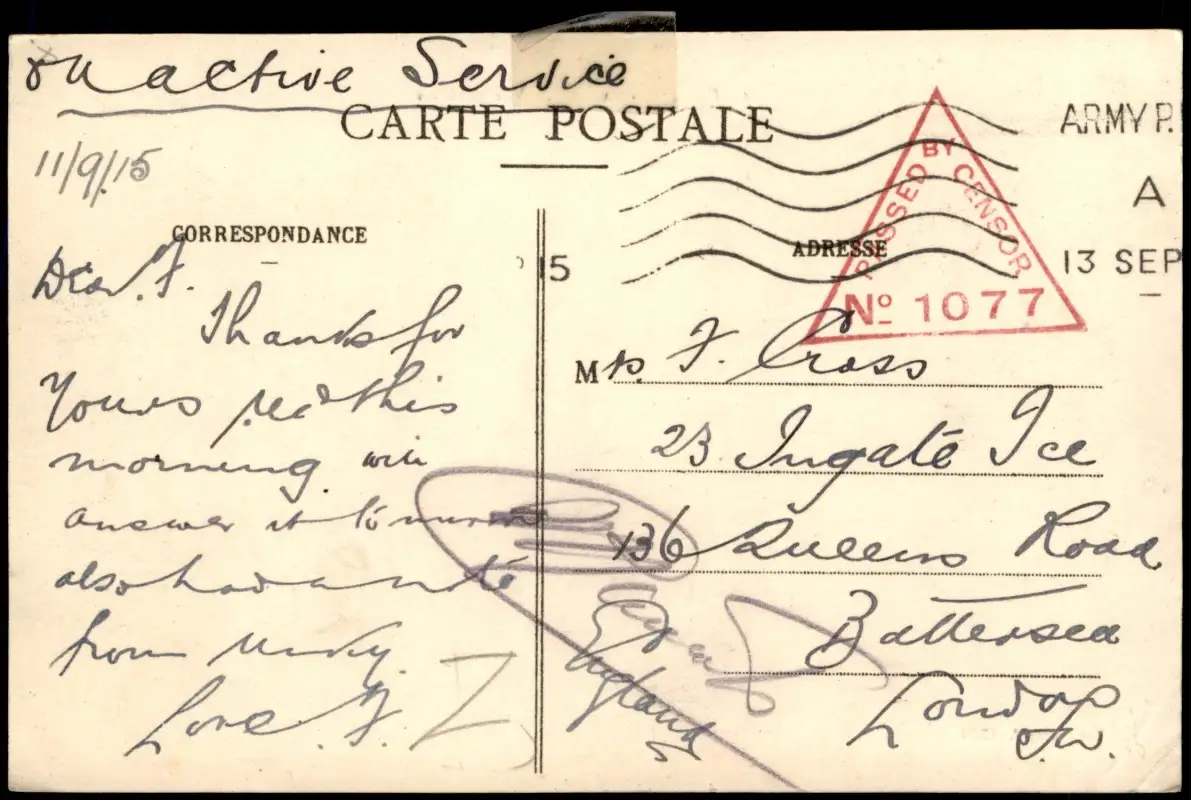 On active Service
CARTE POSTALE
11/9/15
ARMY P.
A
13 SEP
15
PASSED BY CENSOR
No 1077
CORRESPONDANCE
ADRESSE
Dear F.
Thanks for
Yours recd this
morning will
answer it
also had a note
from
Love. F.
Mrs. F. Cross
23 Ingate Ice
136 Queens Road
Battersea
London
S.W.
England